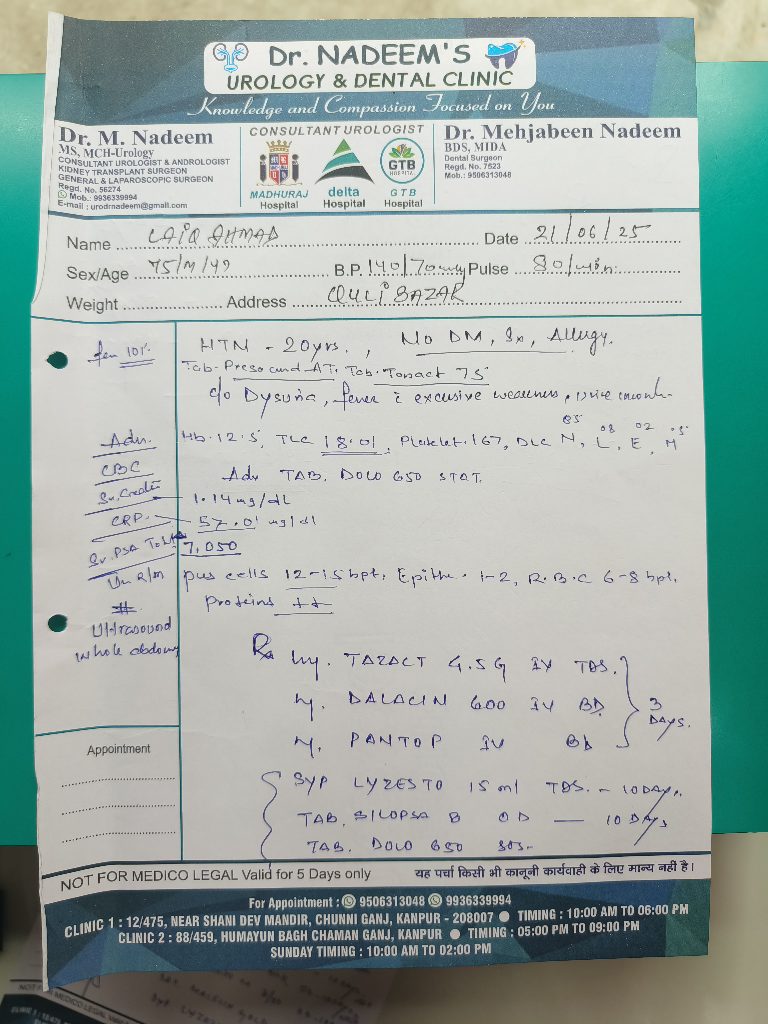 Dr. NADEEM'S
UROLOGY & DENTAL CLINIC
Knowledge and Compassion Focused on You
Dr. M. Nadeem
MS, MCH-Urology
CONSULTANT UROLOGIST & ANDROLOGIST
KIDNEY TRANSPLANT SURGEON
GENERAL & LAPAROSCOPIC SURGEON
Regd. No. 56274
Mob.: 9936339994
E-mail : urodrnadeem@gmail.com
CONSULTANT UROLOGIST
MADHURAJ Hospital
delta Hospital
GTB HOSPITAL
GTB Hospital
Dr. Mehjabeen Nadeem
BDS, MIDA
Dental Surgeon
Regd. No. 7523
Mob.: 9506313048
Name LAIQ AHMAD Date 21/06/25
Sex/Age 75/M/49 B.P. 140/70 Pulse 80/min
Weight Address QULI BAZAR
HTN - 20yrs., No DM, Sx, Allergy.
Tab. AT, Tab. 75
c/o Dysuria, fever c weakness,
Adv. Hb. 12.5, TLC 18.01, Platelet. 167, DLC N, L, E, M
85 08 02 05
CBC Adv TAB. DOLO 650 STAT.
Sr. 1.14 mg/dl
CRP 57.01 mg/dl
Sr. PSA 7.050
R/M pus cells 12-15 hpf, Epithe. 1-2, R.B.C 6-8 hpf,
Proteins ++
Ultrasound
whole abdomen
Rx
Inj. TAZACT 4.5G IV TDS.
Inj. DALACIN 600 IV BD
Inj. PANTOP IV BD
3 DAYS.
SYP LYZESTO 15 ml TDS. - 10 DAYS.
TAB. SILOPSA 8 OD — 10 DAYS
TAB. DOLO 650 SOS-
Appointment
NOT FOR MEDICO LEGAL Valid for 5 Days only
यह पर्चा किसी भी कानूनी कार्यवाही के लिए मान्य नहीं है।
For Appointment : 9506313048 9936339994
CLINIC 1 : 12/475, NEAR SHANI DEV MANDIR, CHUNNI GANJ, KANPUR - 208007 ● TIMING : 10:00 AM TO 06:00 PM
CLINIC 2 : 88/459, HUMAYUN BAGH CHAMAN GANJ, KANPUR ● TIMING : 05:00 PM TO 09:00 PM
SUNDAY TIMING : 10:00 AM TO 02:00 PM